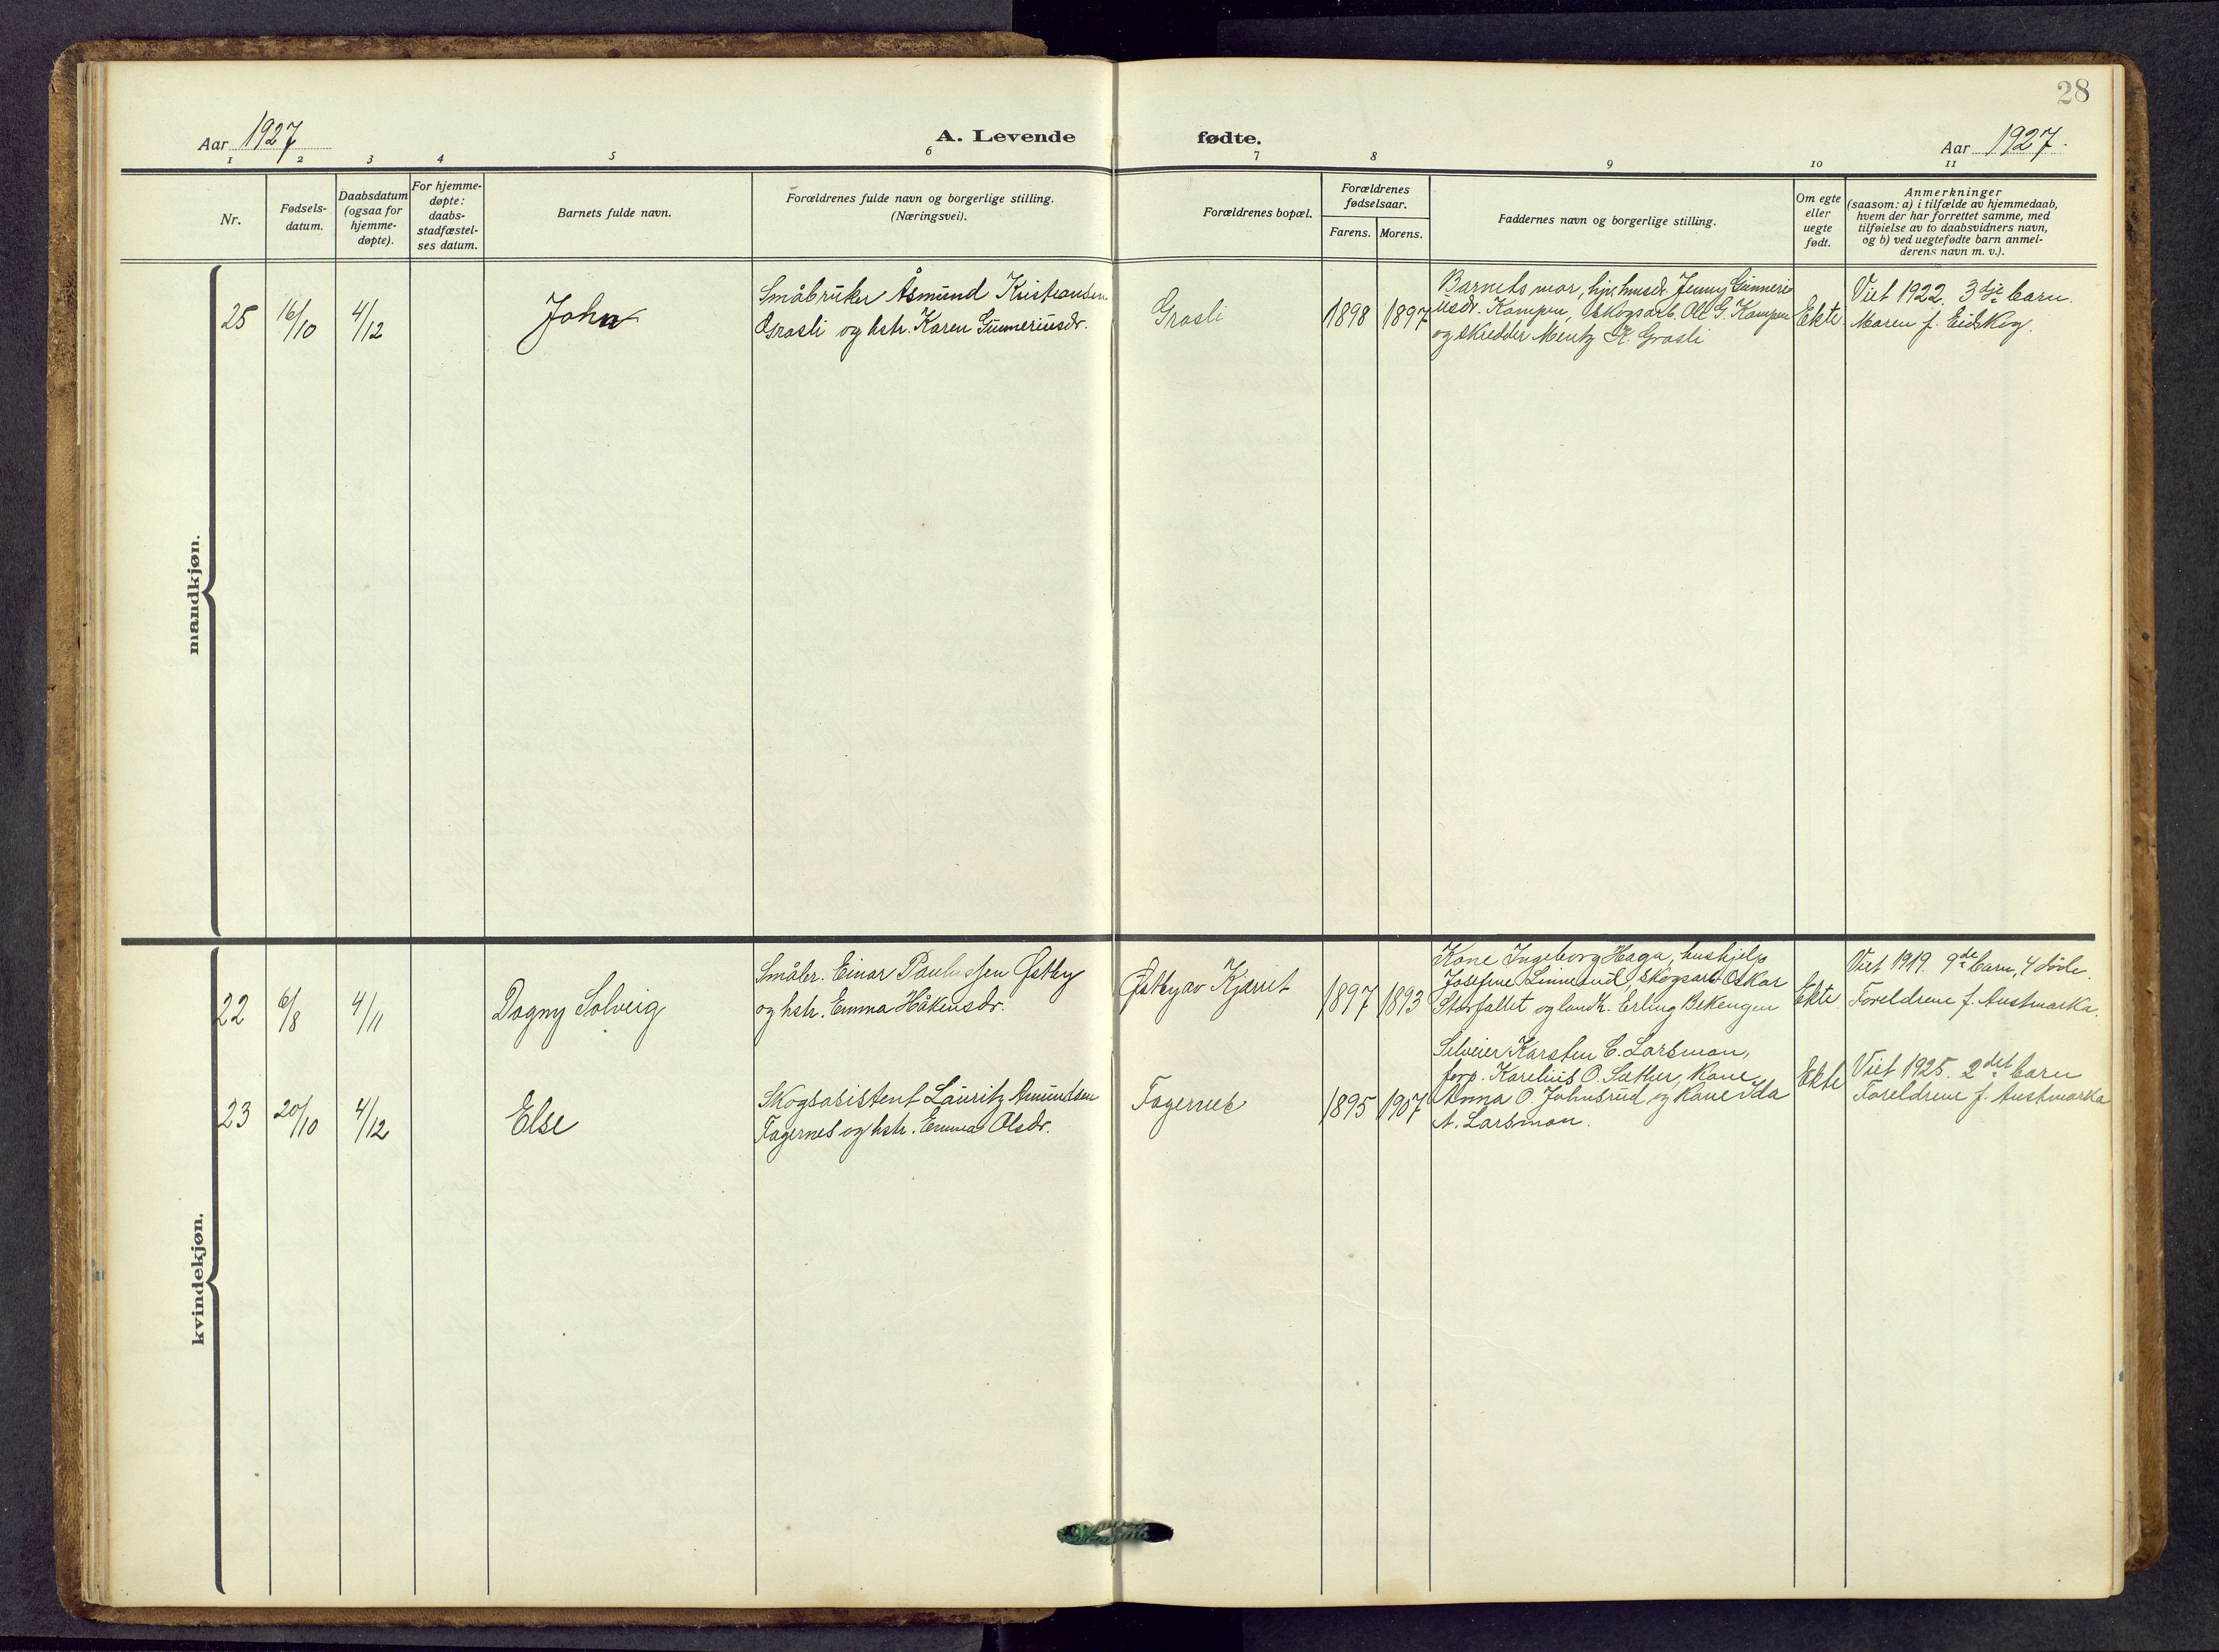 28
Aar 1927
A. Levende fødte.
Aar 1927.
1 2 3 4 5 6 7 8 9 10 11
Nr.
Fødsels-
datum.
Daabsdatum
(ogsaa for
hjemme-
døpte).
For hjemme-
døpte:
daabs-
stadfæstel-
ses datum.
Barnets fulde navn.
Forældrenes fulde navn og borgerlige stilling.
(Næringsvei).
Forældrenes bopæl.
Forældrenes
fødselsaar.
Farens. Morens.
Faddernes navn og borgerlige stilling.
Om egte
eller
uegte
født.
Anmerkninger
(saasom: a) i tilfælde av hjemmedaab,
hvem der har forrettet samme, med
tilføielse av to daabsvidners navn,
og b) ved uegtefødte barn anmel-
derens navn m. v.).
mandkjøn.
25
16/10
4/12
John
Småbruker Åsmund Kristiansen
Grasli og hstr. Karen Gunneriusdr.
Grasli
1898
1897
Barnets mor, hjv. husdr. Jenny Gunneri
usdr. Kampen, skogsarb. Ole G. Kampen
og skredder Mentz K. Grasli
Ekte
Viet 1922. 3dje barn.
Maren f. Eidskog.
kvindekjøn.
22
6/8
4/11
Dagny Solveig
Småbr. Einar Paulussen Østby
og hstr. Emma Håkensdr.
Østby av Kjærret
1897
1893
Kone Ingeborg Haga, hushjelp
Josefine Linnerud, skogsarb. Oskar
Storfallet og landh. Erling Bekengen
Ekte
Viet 1919. 9de barn, 4 døde.
Foreldrene f. Austmarka.
23
20/10
4/12
Else
Skogsasistent Lauritz Amundsen
Fagernes og hstr. Emma Olsdr.
Fagernes
1895
1907
Selveier Karsten C. Larsmon,
forp. Karelius O. Sæther, Kone
Anna O. Johnsrud og Kone Ida
A. Larsmon.
Ekte
Viet 1925. 2det barn
Foreldrene f. Austmarka